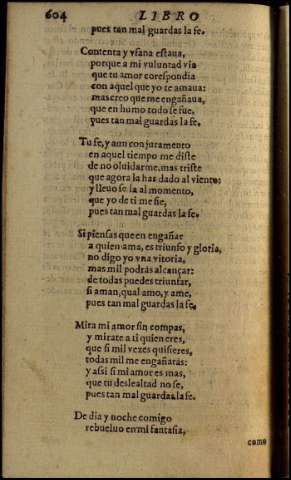 604 LIBRO
pues tan mal guardas la fe.
Contenta y vfana estaua,
porque a mi voluntad via
que tu amor corespondia
con aquel que yo te amaua:
mas creo que me engañaua,
que en humo todo se fue,
pues tan mal guardas la fe.
Tu fe, y aun con juramento
en aquel tiempo me diste
de no oluidarme, mas triste
que agora la has dado al viento:
y lleuosela al momento,
que yo de ti me fie,
pues tan mal guardas la fe.
Si piensas que en engañar
a quien ama, es triunfo y gloria,
no digo yo vna vitoria,
mas mil podrás alcançar:
de todas puedes triunfar,
si aman, qual amo, y ame,
pues tan mal guardas la fe.
Mira mi amor sin compas,
y mirate a ti quien eres,
que si mil vezes quisieres,
todas mil me engañarás:
y assi si mi amor es mas,
que tu deslealtad no se,
pues tan mal guardas la fe.
De dia y noche comigo
rebueluo en mi fantasia,
como